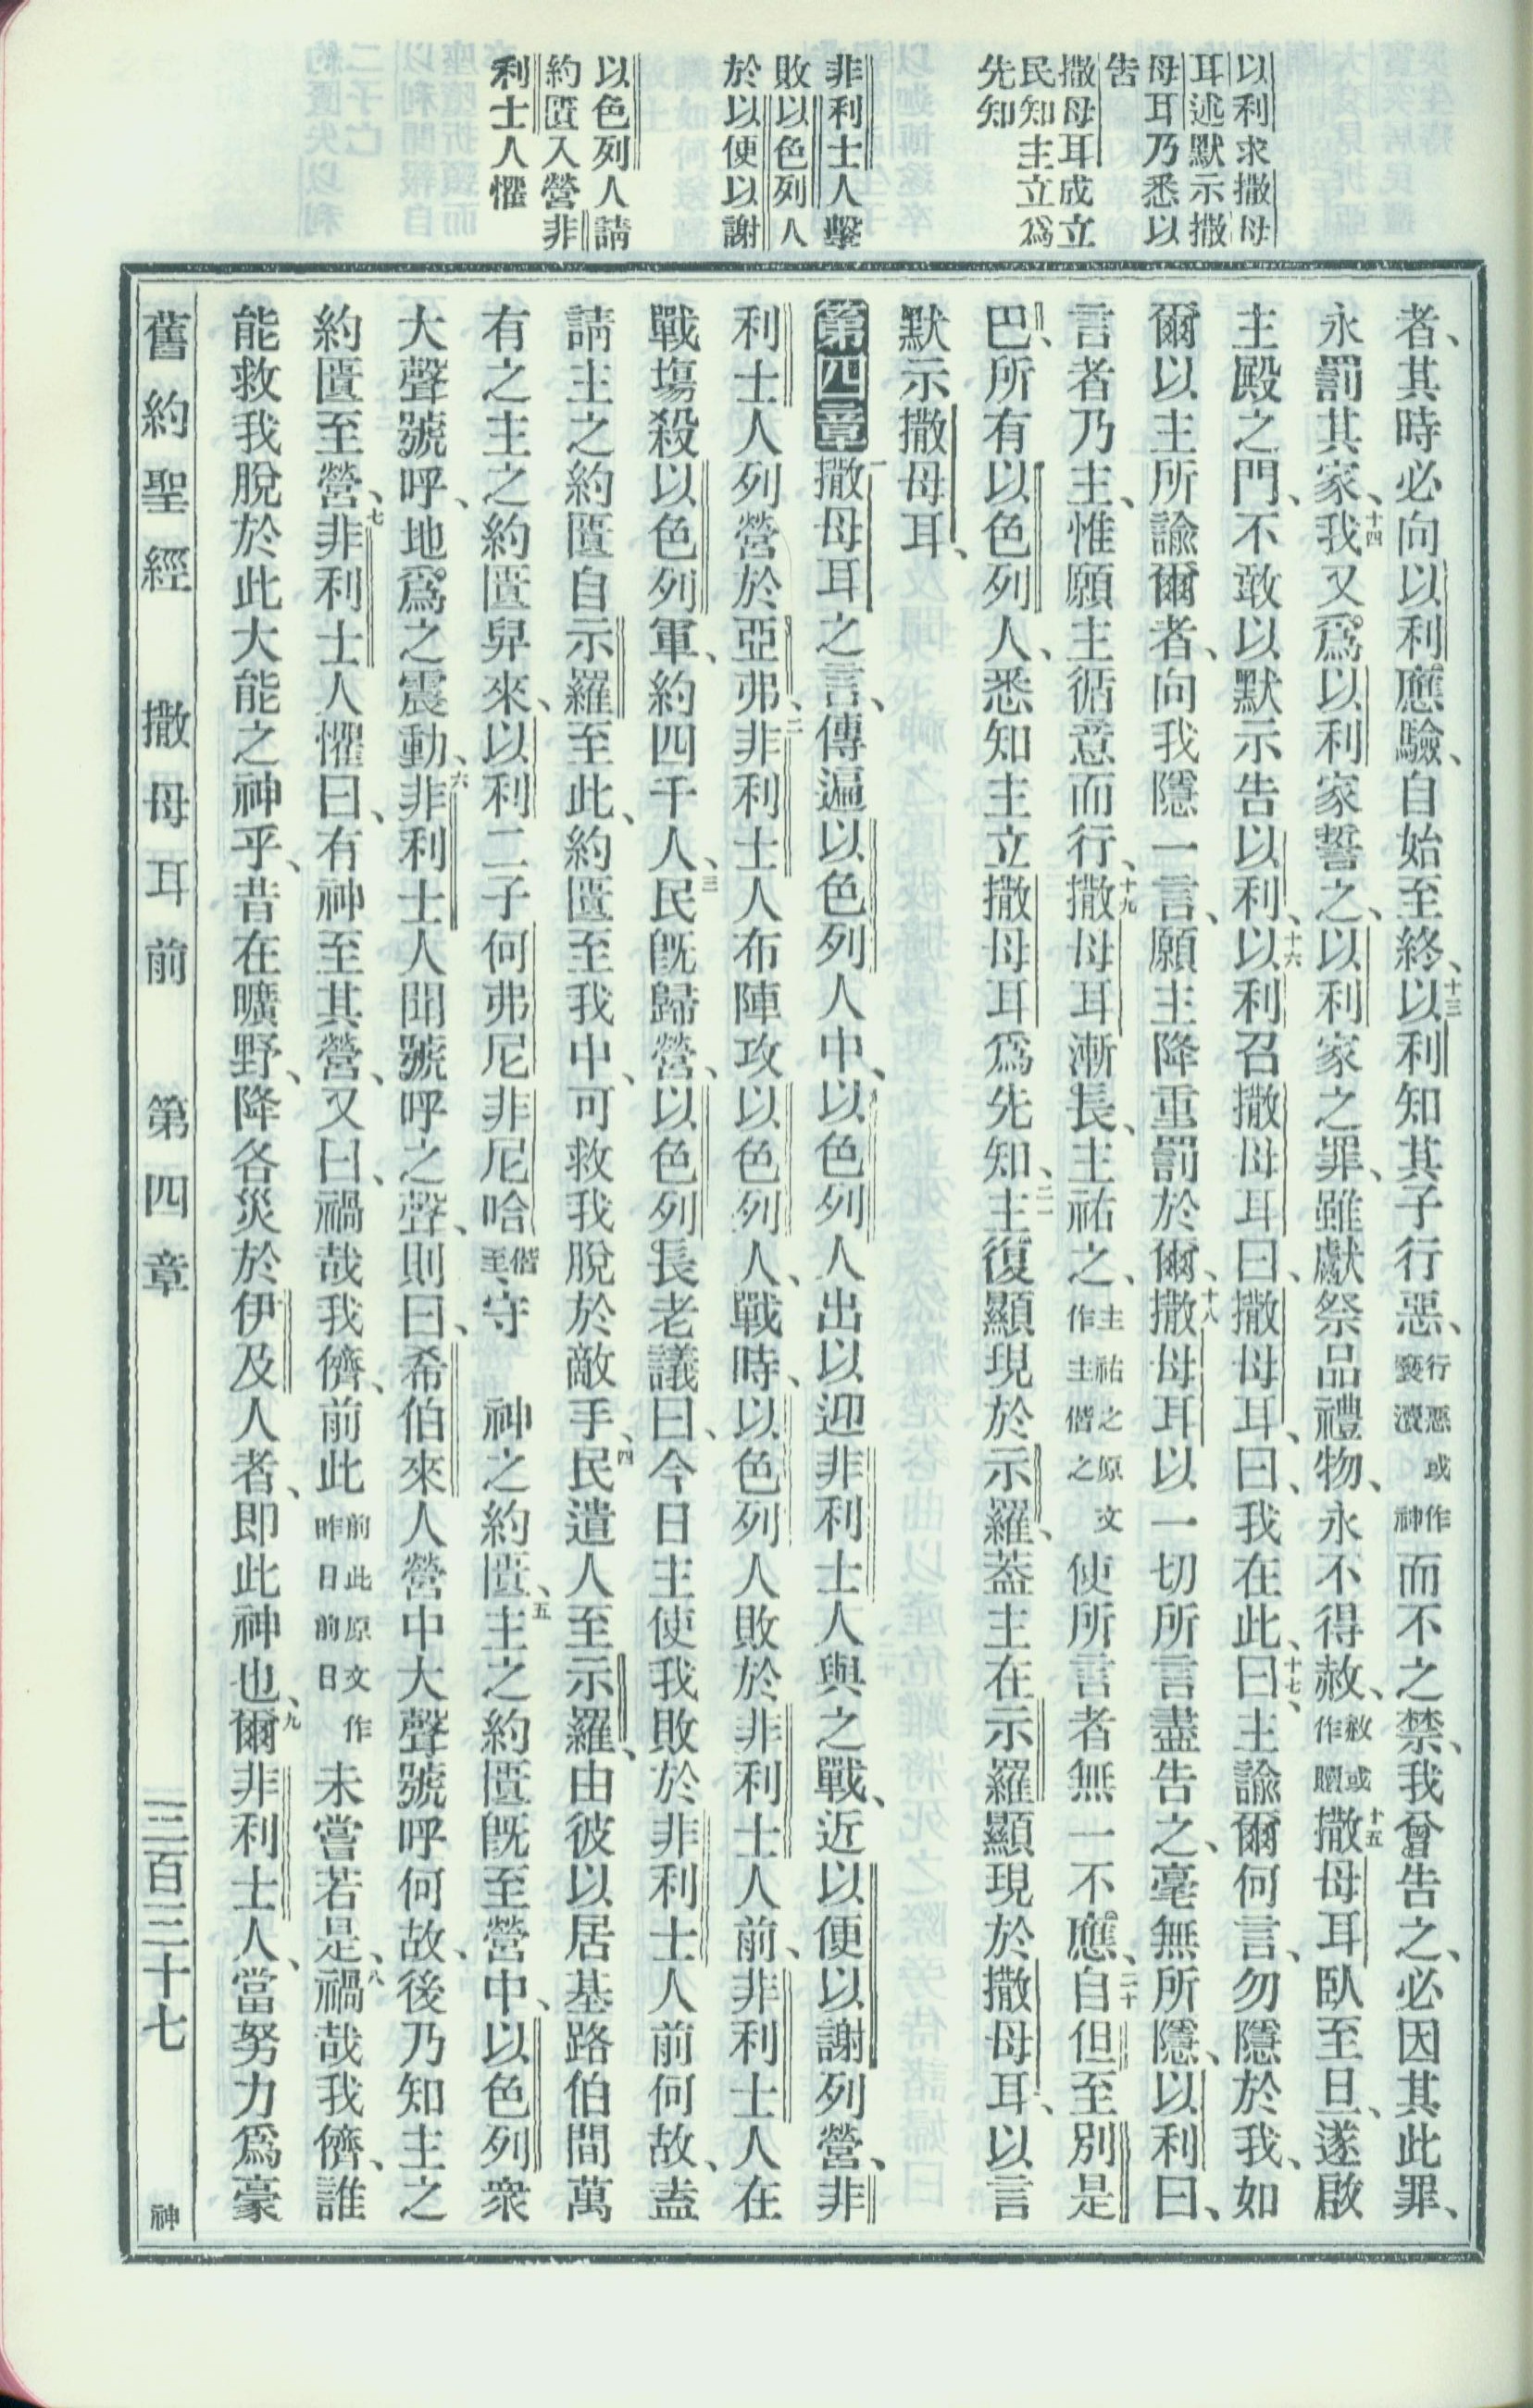 以利求撒母
耳述默示撒
母耳乃悉以
告
撒母耳成立
民知主立爲
先知
非利士人擊
敗以色列人
於以便以謝
以色列人請
約匱入營非
利士人懼
者、其時必向以利應驗、自始至終、十三以利知其子行惡、行惡或作褻瀆神而不之禁、我曾告之、必因其此罪、
永罰其家、十四我又爲以利家誓之、以利家之罪、雖獻祭品禮物、永不得赦、赦或作贖十五撒母耳臥至旦、遂啟
主殿之門、不敢以默示告以利、十六以利召撒母耳曰、撒母耳、曰、我在此、十七曰、主諭爾何言、勿隱於我、如
爾以主所諭爾者、向我隱一言、願主降重罰於爾、十八撒母耳以一切所言盡告之、毫無所隱、以利曰、
言者乃主、惟願主循意而行、十九撒母耳漸長、主祐之、主祐之原文作主偕之使所言者無一不應、二十自但至別是
巴、所有以色列人、悉知主立撒母耳爲先知、二一主復顯現於示羅、蓋主在示羅顯現於撒母耳、以言
默示撒母耳、
第四章一撒母耳之言、傳遍以色列人中、以色列人出以迎非利士人與之戰、近以便以謝列營、非
利士人列營於亞弗、二非利士人布陣攻以色列人、戰時、以色列人敗於非利士人前、非利士人在
戰塲殺以色列軍、約四千人、三民旣歸營、以色列長老議曰、今日主使我敗於非利士人前何故、盍
請主之約匱自示羅至此、約匱至我中、可救我脫於敵手、四民遣人至示羅、由彼以居基路伯間萬
有之主之約匱舁來、以利二子何弗尼非尼哈偕至守　神之約匱、五主之約匱旣至營中、以色列衆
大聲號呼、地爲之震動、六非利士人聞號呼之聲、則曰、希伯來人營中大聲號呼何故、後乃知主之
約匱至營、七非利士人懼曰、有神至其營、又曰、禍哉我儕、前此前此原文作昨日前日未嘗若是、八禍哉我儕、誰
能救我脫於此大能之神乎、昔在曠野、降各災於伊及人者、即此神也、九爾非利士人、當努力爲豪
舊約聖經　撒母耳前　第四章　三百三十七　神